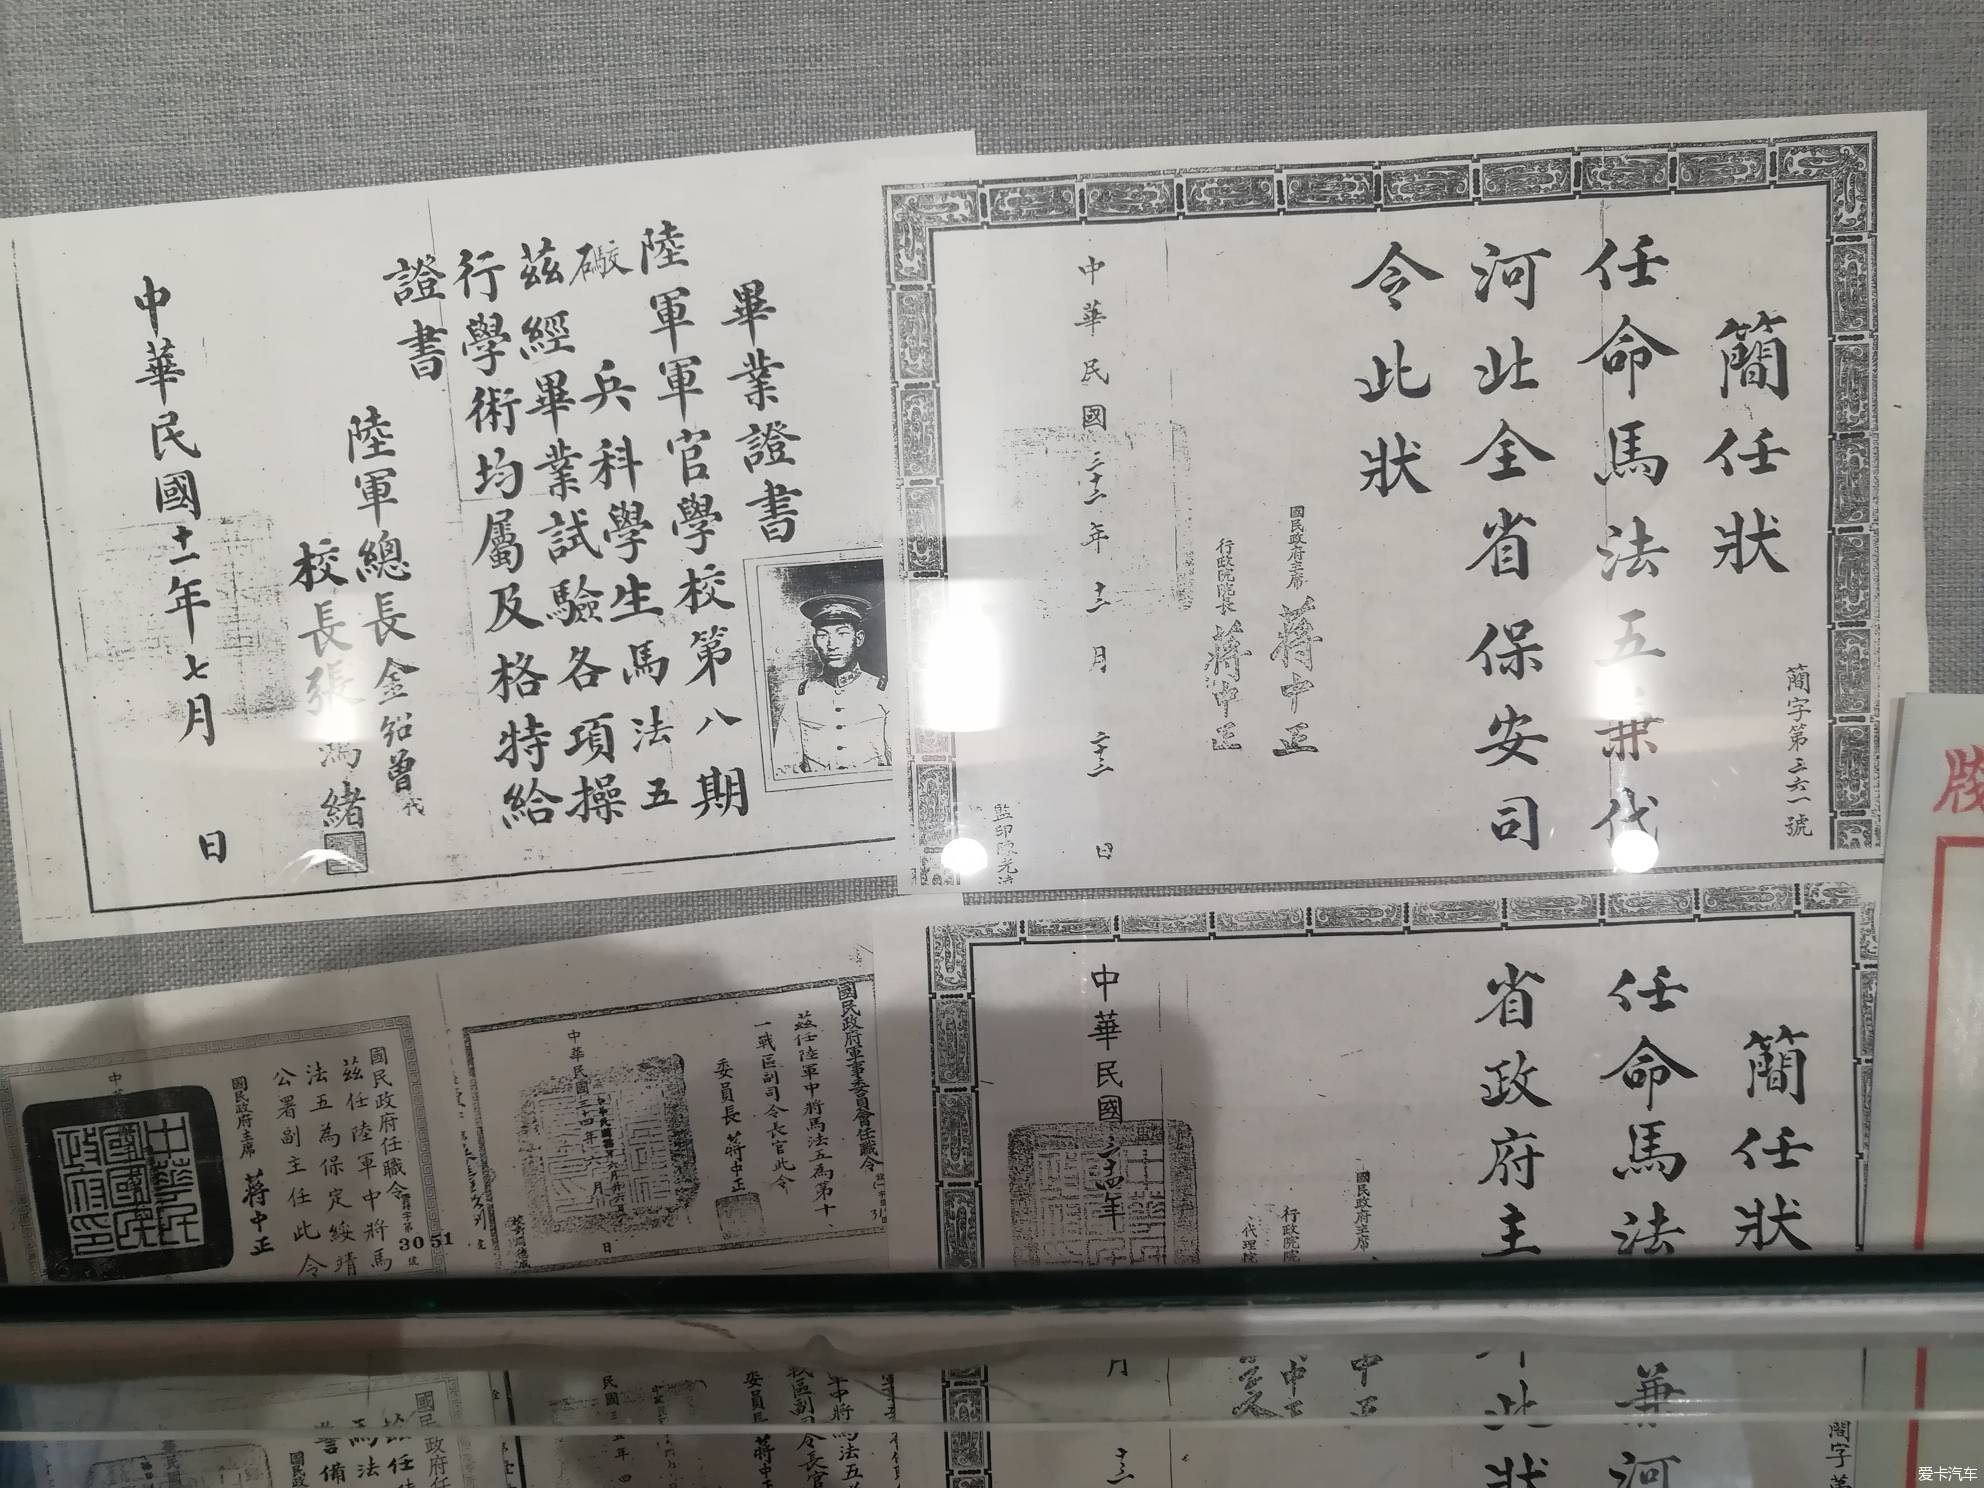 畢業證書
陸軍軍官學校第八期
礮兵科學生馬法五
茲經畢業試驗各項操
行學術均屬及格特給
證書
陸軍總長金紹曾代
校長張鴻緒
中華民國十一年七月 日
簡任狀
簡字第三六一號
任命馬法五兼代
河北全省保安司
令此狀
國民政府主席 蔣中正
行政院院長 蔣中正
中華民國三十三年十二月二十三日
簡任狀
任命馬法
兼河
省政府主
此狀
國民政府主席
中正
行政院院
代理院
中華民國三十四年
月
簡字第
國民政府軍事委員會任職令
茲任陸軍中將馬法五為第十
一戰區副司令長官此令
委員長 蔣中正
中華民國三十四年六月 日
國民政府任職令
3051號
茲任陸軍中將馬
法五為保定綏靖
公署副主任此令
國民政府主席 蔣中正
中華民國國民政府印
國民政府任
茲任
馬法
警備
國民政
軍中將馬法五
戰區副司令長官
委員長蔣中正
民國三五年四
爱卡汽车